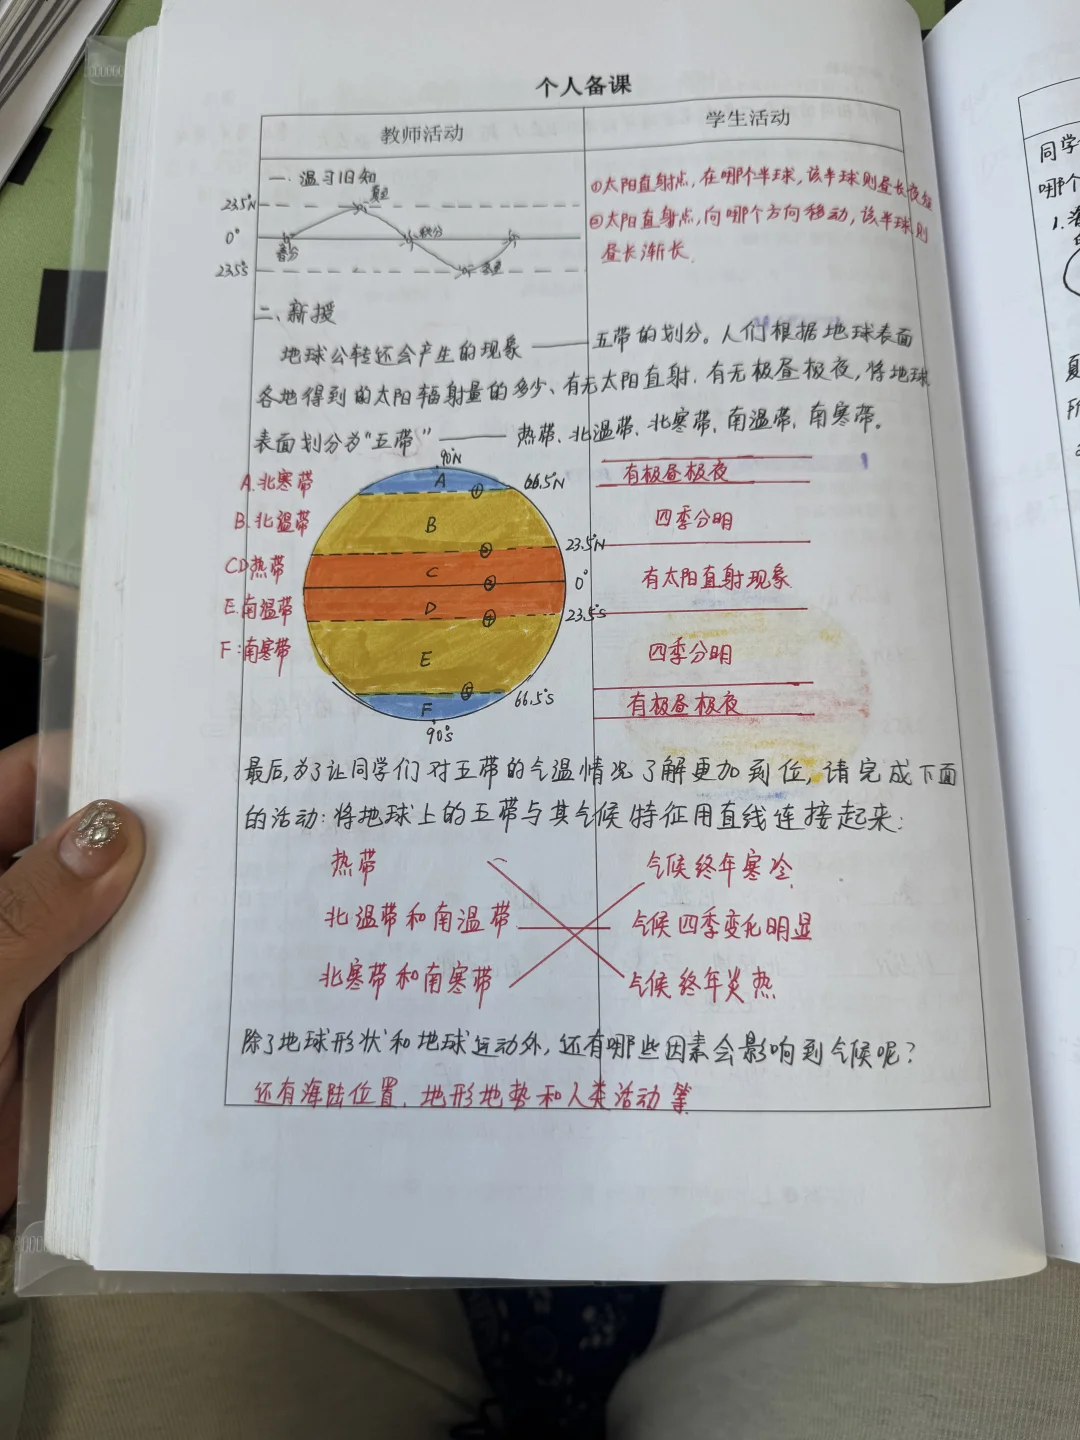 个人备课
教师活动
学生活动
一. 温习旧知
23.5°N
夏至
0°
春分
秋分
23.5°S
冬至
①太阳直射点,在哪个半球,该半球则昼长夜短
②太阳直射点,向哪个方向移动,该半球则
昼长渐长.
二、新授
地球公转还会产生的现象 —— 五带的划分。人们根据地球表面
各地得到的太阳辐射量的多少、有无太阳直射、有无极昼极夜,将地球
表面划分为“五带” —— 热带、北温带、北寒带、南温带、南寒带。
90°N
A.北寒带
A
①
66.5°N
有极昼极夜
B.北温带
B
四季分明
②
23.5°N
CD热带
C
有太阳直射现象
③
0°
E.南温带
D
④
23.5°S
F:南寒带
E
四季分明
⑤
66.5°S
有极昼极夜
F
90°S
最后,为了让同学们对五带的气温情况了解更加到位,请完成下面
的活动:将地球上的五带与其气候特征用直线连接起来:
热带
气候终年寒冷
北温带和南温带
气候四季变化明显
北寒带和南寒带
气候终年炎热
除了地球形状和地球运动外,还有哪些因素会影响到气候呢?
还有海陆位置、地形地势和人类活动等
同学
哪个
1.
夏
所